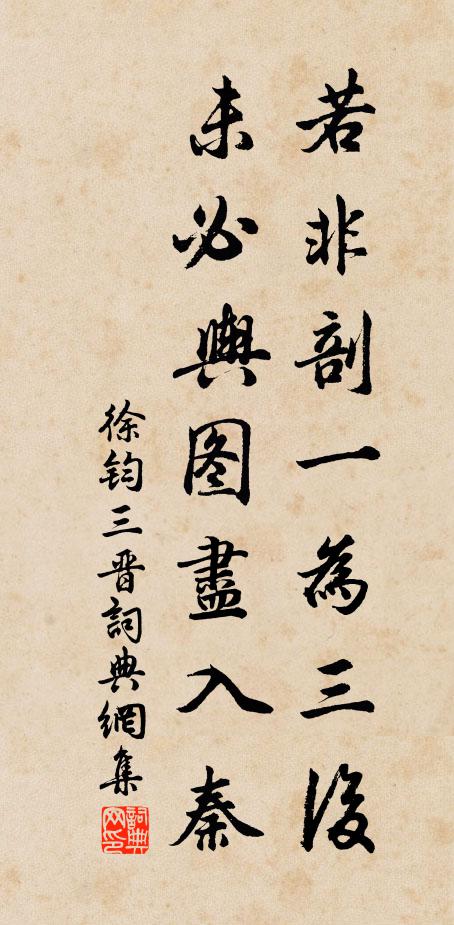 若非剖一為三後
未必輿图盡入秦
徐钧三晋詞典網集
詞典网印